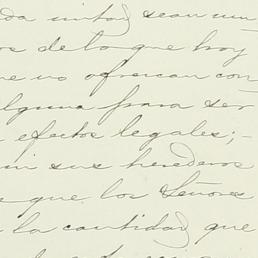 da mitad sean um
os de lo que hoy
ue no ofrezcan con
lguna para ser
efectos legales;-
in sus herederos
e que los Señores
la cantidad que